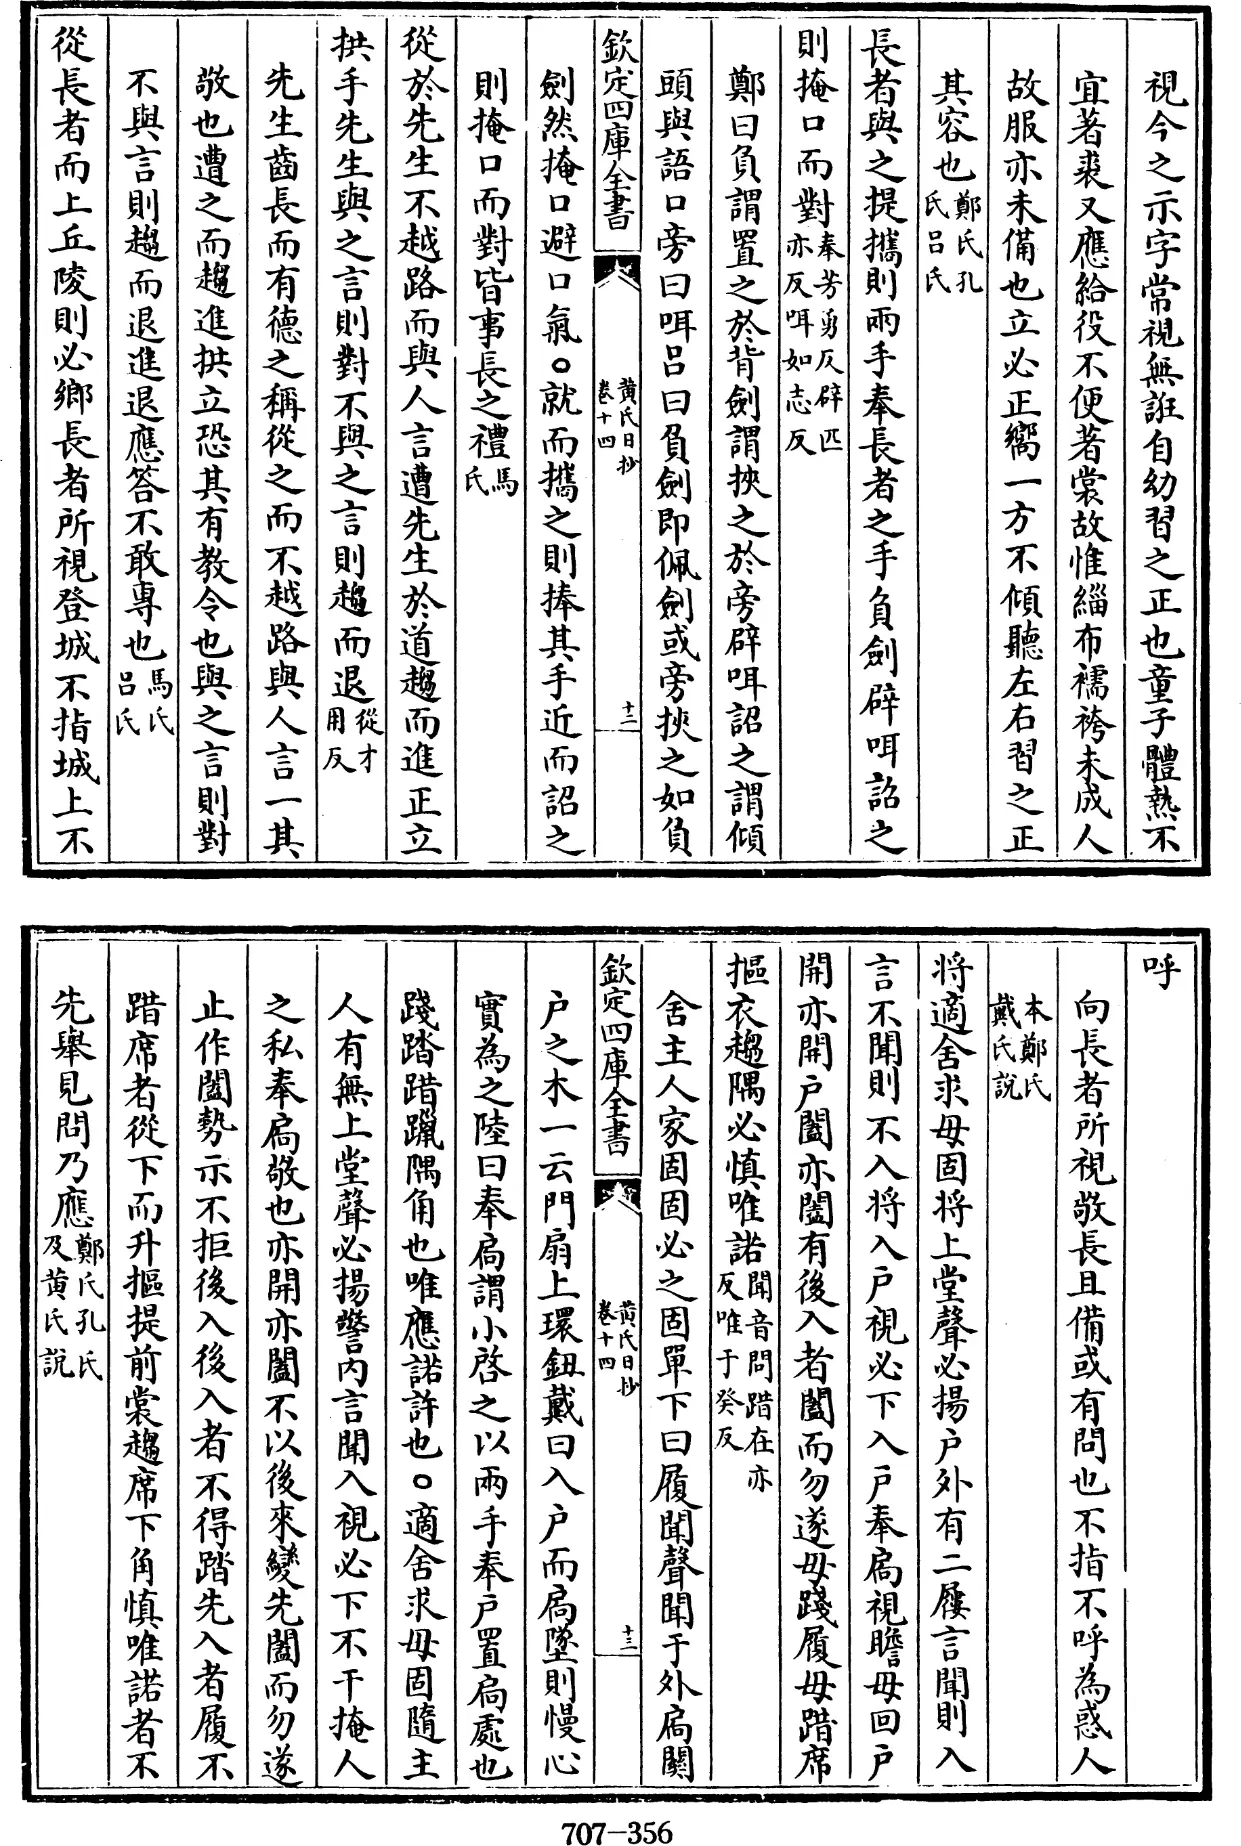 視今之示字常視無誑自幼習之正也童子體熱不
宜著裘又應給役不便著裳故惟緇布襦袴未成人
故服亦未備也立必正嚮一方不傾聽左右習之正
其容也鄭氏孔氏呂氏
長者與之提攜則兩手奉長者之手負劍辟咡詔之
則掩口而對奉芳勇反辟匹亦反咡如志反
鄭曰負謂置之於背劍謂挾之於旁辟咡詔之謂傾
頭與語口旁曰咡呂曰負劍即佩劍或旁挾之如負
欽定四庫全書
黃氏日抄
卷十四
十二
劍然掩口避口氣○就而攜之則捧其手近而詔之
則掩口而對皆事長之禮馬氏
從於先生不越路而與人言遭先生於道趨而進正立
拱手先生與之言則對不與之言則趨而退從才用反
先生齒長而有德之稱從之而不越路與人言一其
敬也遭之而趨進拱立恐其有教令也與之言則對
不與言則趨而退進退應答不敢專也馬氏呂氏
從長者而上丘陵則必鄉長者所視登城不指城上不
呼
向長者所視敬長且備或有問也不指不呼為惑人
本鄭氏戴氏說
將適舍求毋固將上堂聲必揚户外有二屨言聞則入
言不聞則不入將入户視必下入户奉扃視瞻毋回户
開亦開户闔亦闔有後入者闔而勿遂毋踐履毋踖席
摳衣趨隅必慎唯諾聞音問踖在亦反唯于癸反
舍主人家固固必之固單下曰履聞聲聞于外扃關
欽定四庫全書
黃氏日抄
卷十四
十三
户之木一云門扇上環鈕戴曰入户而扃墜則慢心
實為之陸曰奉扃謂小啓之以兩手奉户置扃處也
踐踏踖躐隅角也唯應諾許也○適舍求毋固隨主
人有無上堂聲必揚警内言聞入視必下不干掩人
之私奉扃敬也亦開亦闔不以後來變先闔而勿遂
止作闔勢示不拒後入後入者不得踏先入者履不
踖席者從下而升摳提前裳趨席下角慎唯諾者不
先舉見問乃應鄭氏孔氏及黃氏說
707-356